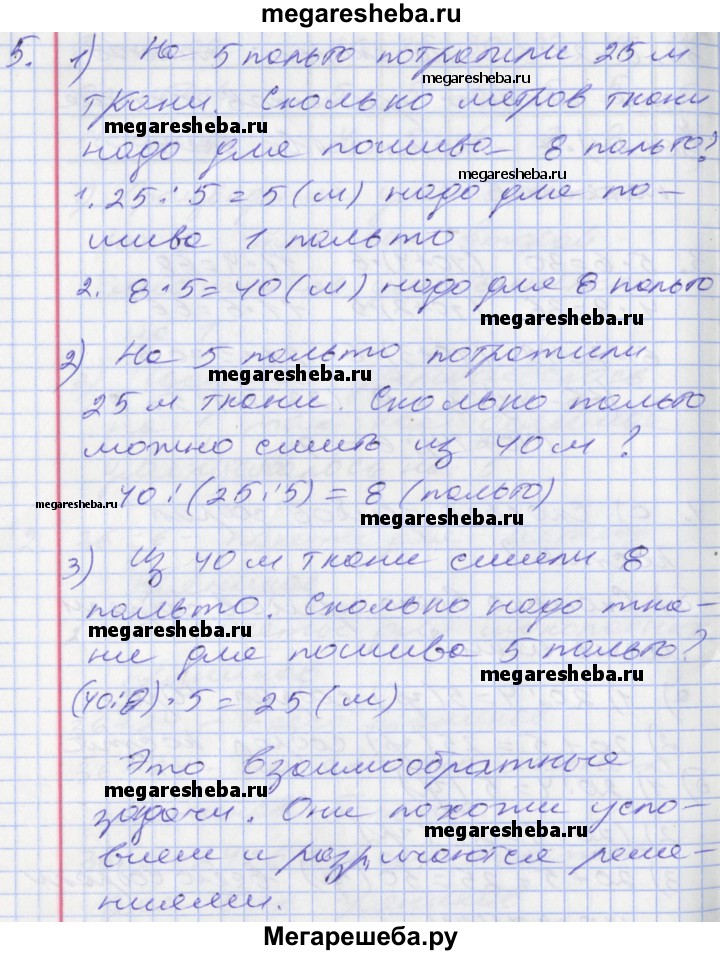 megaresheba.ru
5. 1) На 5 пальто потратили 25 м
megaresheba.ru
ткани. Сколько метров ткани
megaresheba.ru
надо для пошива 8 пальто?
megaresheba.ru
1. 25 : 5 = 5 (м) надо для по-
шива 1 пальто
2. 8 · 5 = 40 (м) надо для 8 пальто
megaresheba.ru
2) На 5 пальто потратили
megaresheba.ru
25 м ткани. Сколько пальто
можно сшить из 40 м?
megaresheba.ru
40 : (25 : 5) = 8 (пальто)
megaresheba.ru
3) Из 40 м ткани сшили 8
пальто. Сколько надо тка-
megaresheba.ru
ни для пошива 5 пальто?
megaresheba.ru
(40 : 8) · 5 = 25 (м)
Это взаимообратные
megaresheba.ru
задачи. Они похожи усло-
megaresheba.ru
вием и различаются реше-
ниями.
Мегарешеба.ру